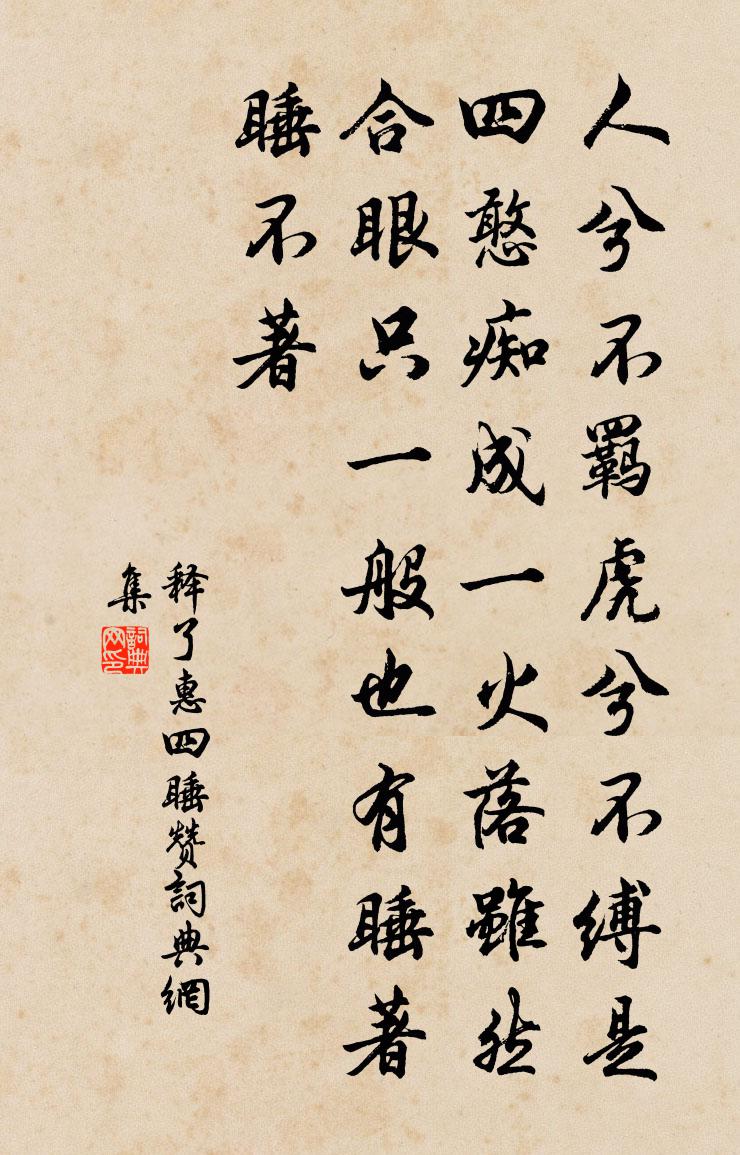 人兮不羁虎兮不缚是
四憨痴成一火落雖然
合眼只一般也有睡著
睡不著
释了惠四睡赞詞典網
集
詞典网印